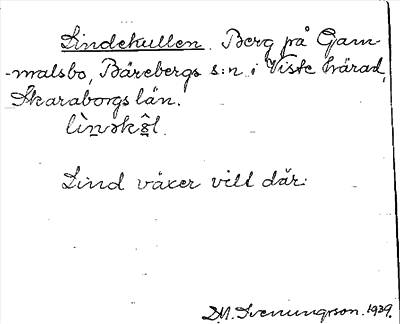 Lindekullen. Berg på Gam-
-malsbo, Bärebergs s:n i Viste härad,
Skaraborgs län.
Lind växer vilt där.
D.M. Svenungsson. 1939.